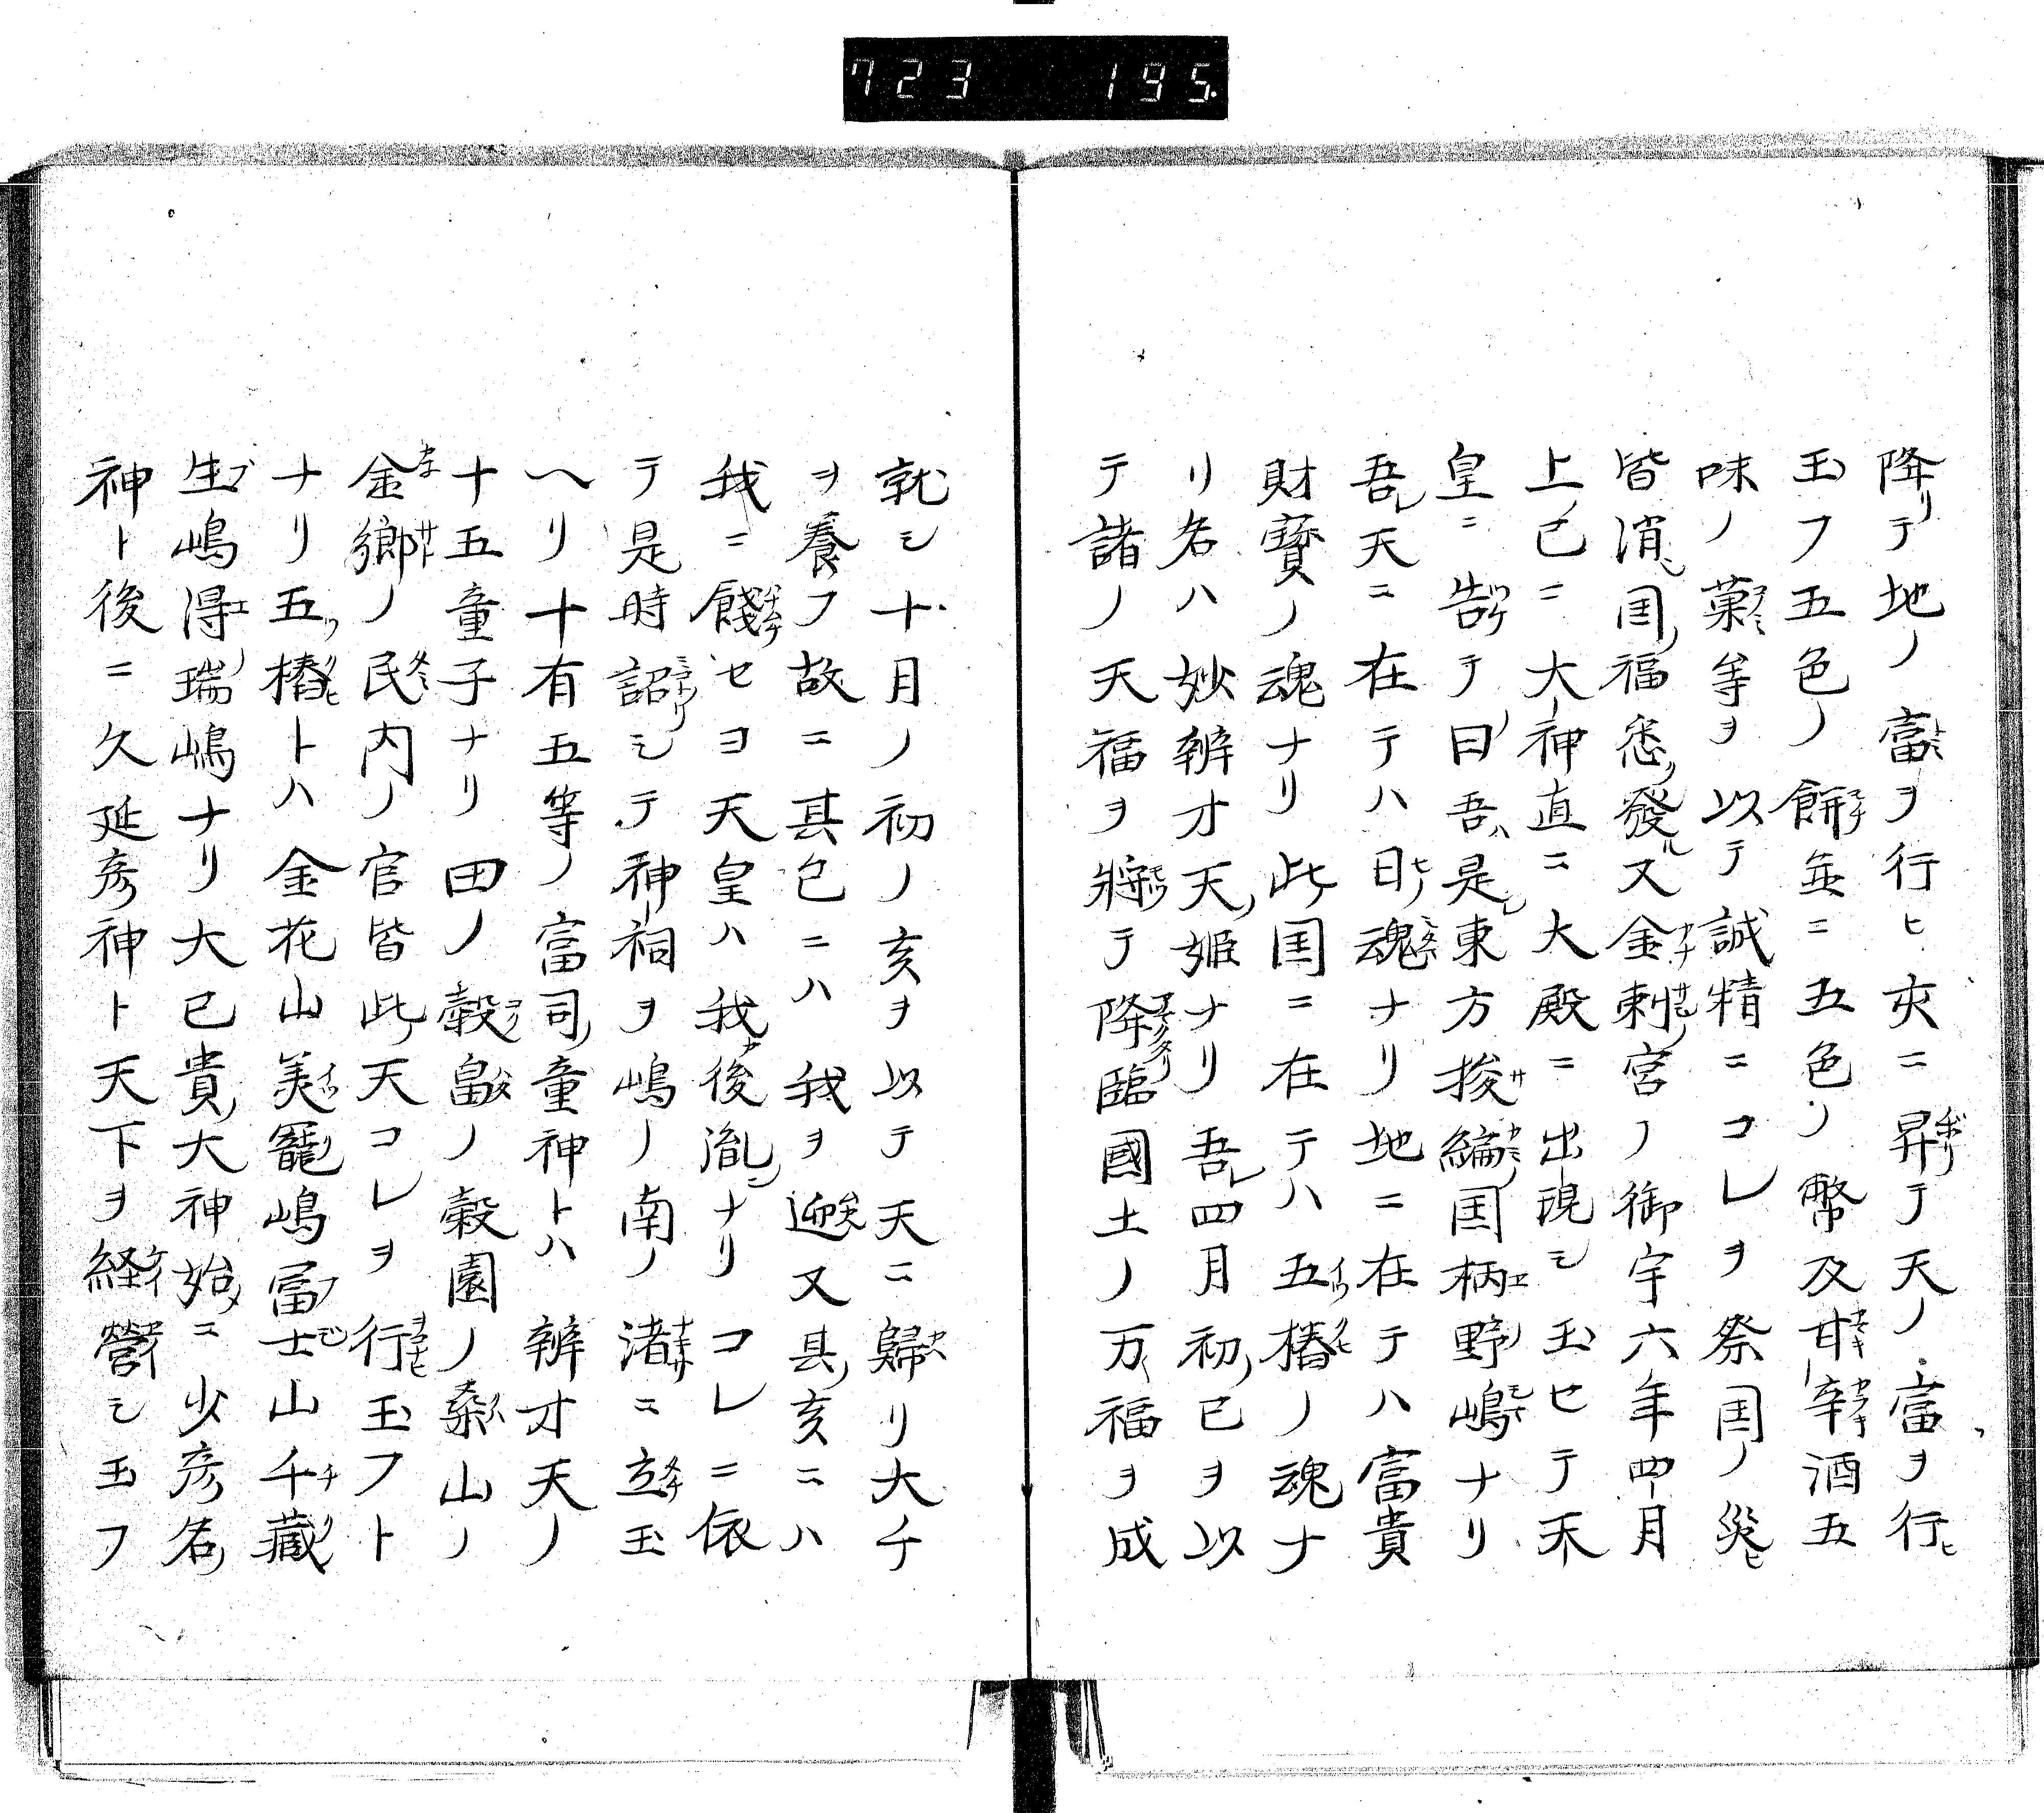 723 195
降リテ地ノ富ヲ行ヒ亥ニ昇テ天ノ富ヲ行ヒ
玉フ五色ノ餅並ニ五色ノ幣及甘辛酒五
味ノ菓等ヲ以テ誠精ニコレヲ祭国ノ災ヒ
皆消シ国ノ福悉ク發ル又金刺ノ宮ノ御宇六年四月
上ノ巳ニ大神直ニ大殿ニ出現シ玉セテ天
皇ニ告テ曰ク吾ハ是レ東方国柄野嶋ナリ
吾レ天ニ在テハ日ノ魂ナリ地ニ在テハ富貴
財寳ノ魂ナリ此国ニ在テハ五椿ノ魂ナ
リ名ハ妙辨才天ノ姫ナリ吾レ四月初ノ巳ヲ以
テ諸ノ天福ヲ將テ降臨國土ノ万ノ福ヲ成
就シ十月ノ初ノ亥ヲ以テ天ニ歸リ大千
ヲ養フ故ニ其巳ニハ我ヲ迎ヘ又其ノ亥ニハ
我ニ餞セヨ天皇ハ我後胤ナリコレニ依
テ是時詔シテ神祠ヲ嶋ノ南ノ渚ニ立玉
ヘリ十有五等ノ富司童神トハ辨才天ノ
十五童子ナリ田ノ穀畠ノ穀園ノ桑山ノ
金郷ノ民内ノ官皆此天コレヲ行玉フト
ナリ五ツ椿トハ金花山美籠嶋富士山千藏
生嶋得瑞嶋ナリ大已貴ノ大神始ニ少彦名ノ
神ト後ニ久延彦神ト天下ヲ経營シ玉フ